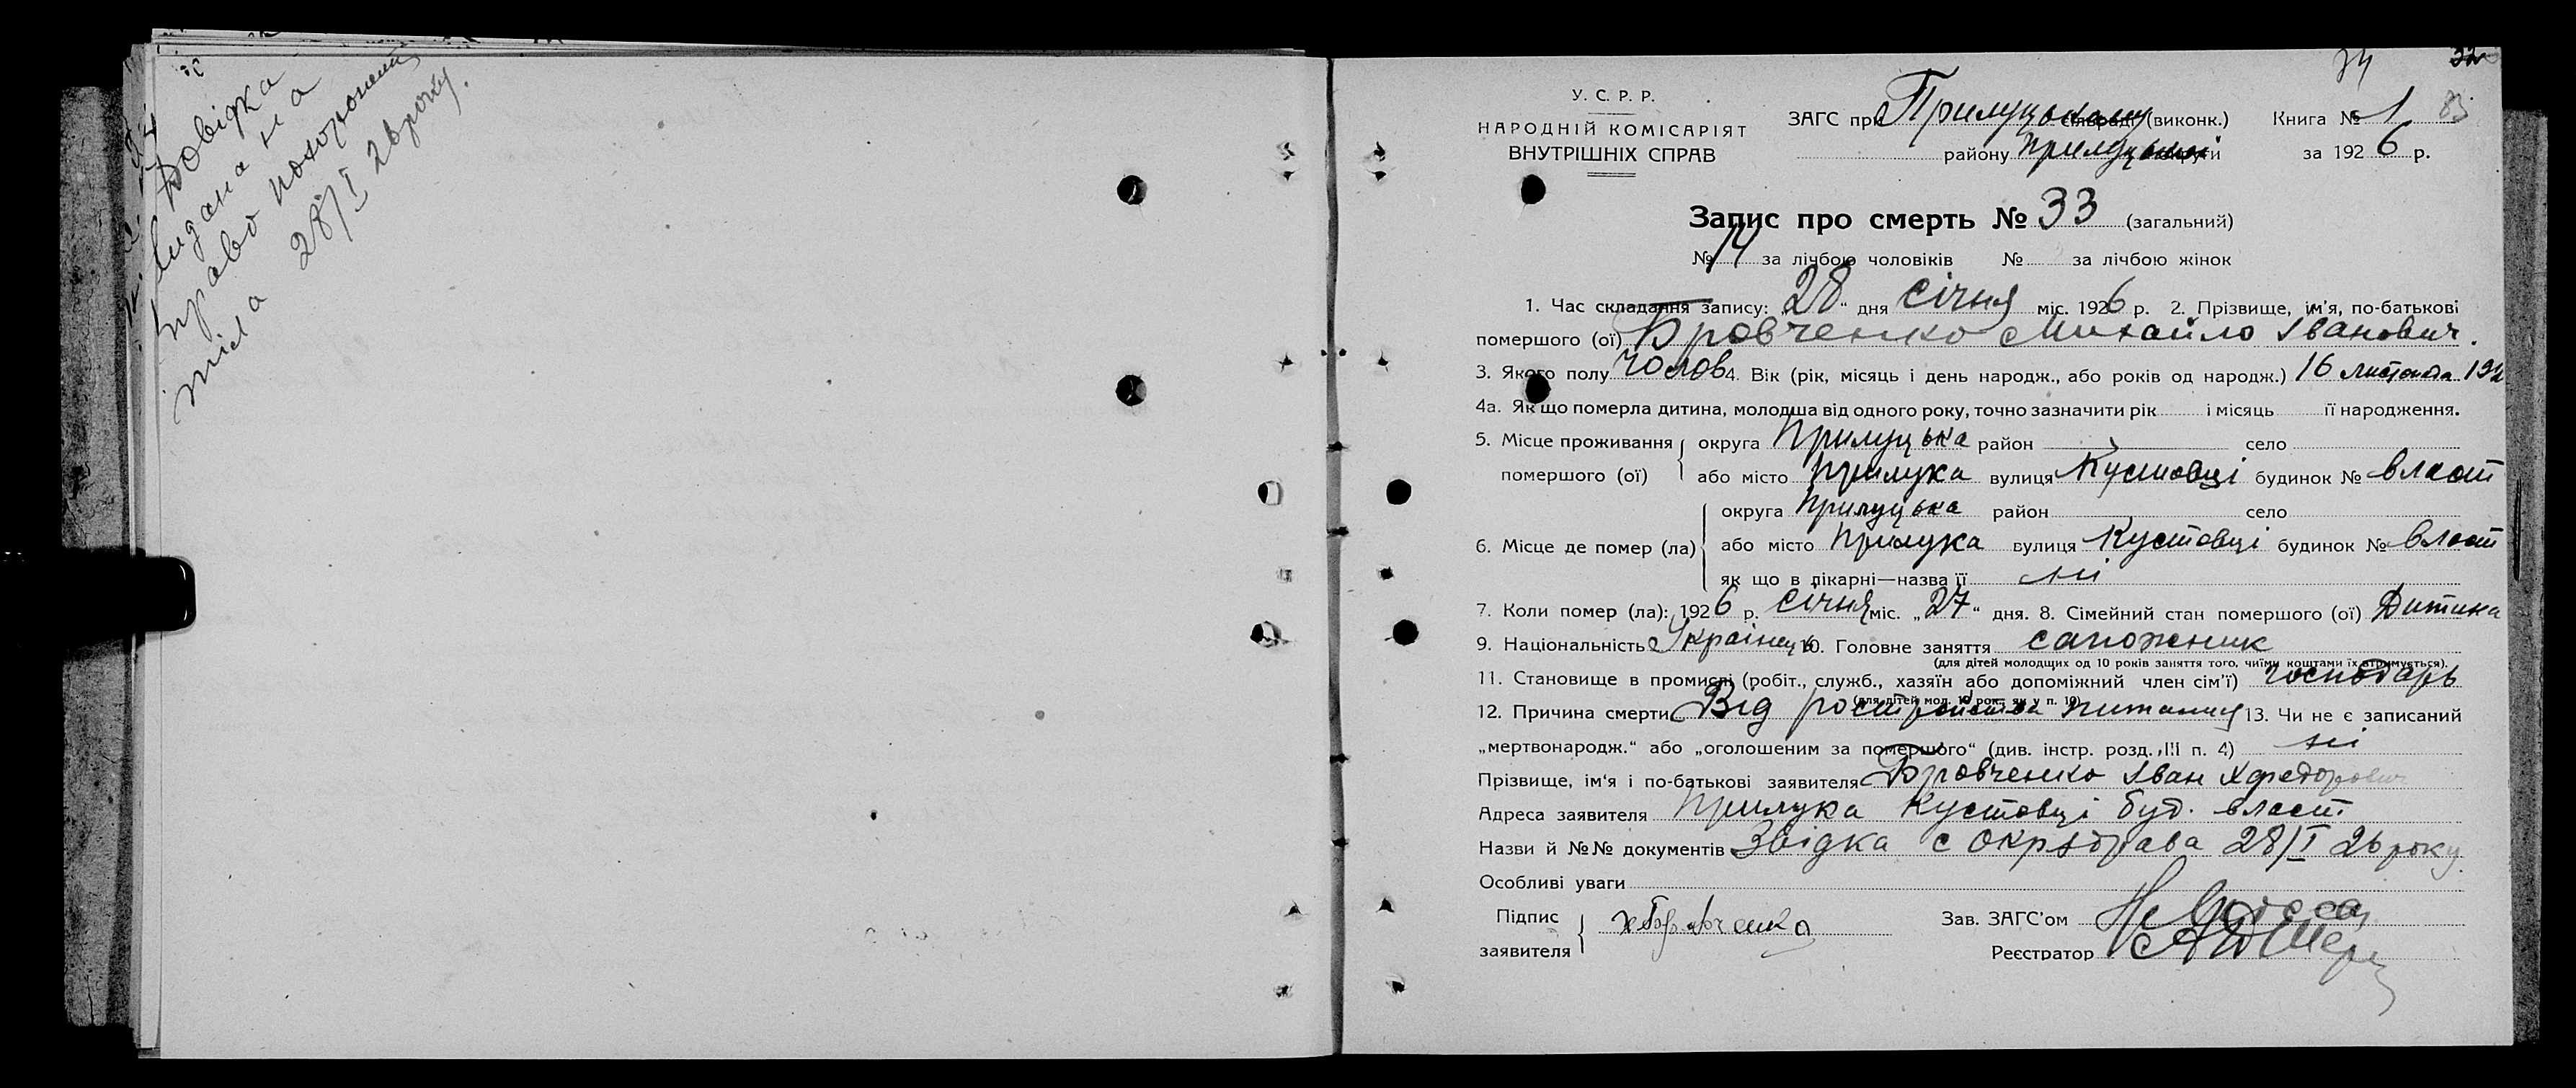 Довідка
видана на
право похорония
тіла 28/I 26 року.
34
32
83
У. С. Р. Р.
НАРОДНІЙ КОМІСАРІЯТ
ВНУТРІШНІХ СПРАВ
ЗАГС при Прилуцькому сільраді (виконк.) Книга № 1
району Прилуцької округи за 1926 р.
Запис про смерть № 33 (загальний)
№ 14 за лічбою чоловіків № за лічбою жінок
1. Час складання запису: „28“ дня січня міс. 1926 р. 2. Прізвище, ім'я, по-батькові
помершого (ої) Бровченко Михайло Іванович.
3. Якого полу чолов 4. Вік (рік, місяць і день народж., або років од народж.) 16 листопада 192
4а. Як що померла дитина, молодша від одного року, точно зазначити рік і місяць її народження.
5. Місце проживання помершого (ої) округа Прилуцька район село
або місто Прилука вулиця Кустовці будинок № власт
6. Місце де помер (ла) округа Прилуцька район село
або місто Прилука вулиця Кустовці будинок № власт
як що в лікарні—назва її ні
7. Коли помер (ла): 1926 р. січня міс. „27“ дня. 8. Сімейний стан помершого (ої) Дитина
9. Національність Українець 10. Головне заняття сапожник
(для дітей молодщих од 10 років заняття того, чиїми коштами їх втримується).
11. Становище в промислі (робіт., служб., хазяїн або допоміжний член сім'ї) господарь
(для дітей мол. 10 рок., як у п. 10)
12. Причина смерти Від ростройства питания 13. Чи не є записаний
„мертвонародж.“ або „оголошеним за помершого“ (див. інстр. розд. III п. 4) ні
Прізвище, ім'я і по-батькові заявителя Бровченко Іван
Адреса заявителя Прилука Кустовці буд. власт
Назви й №№ документів Звідка с Окрздрава 28/I 26 року
Особливі уваги
Підпис заявителя Бровченко
Зав. ЗАГС'ом
Реєстратор